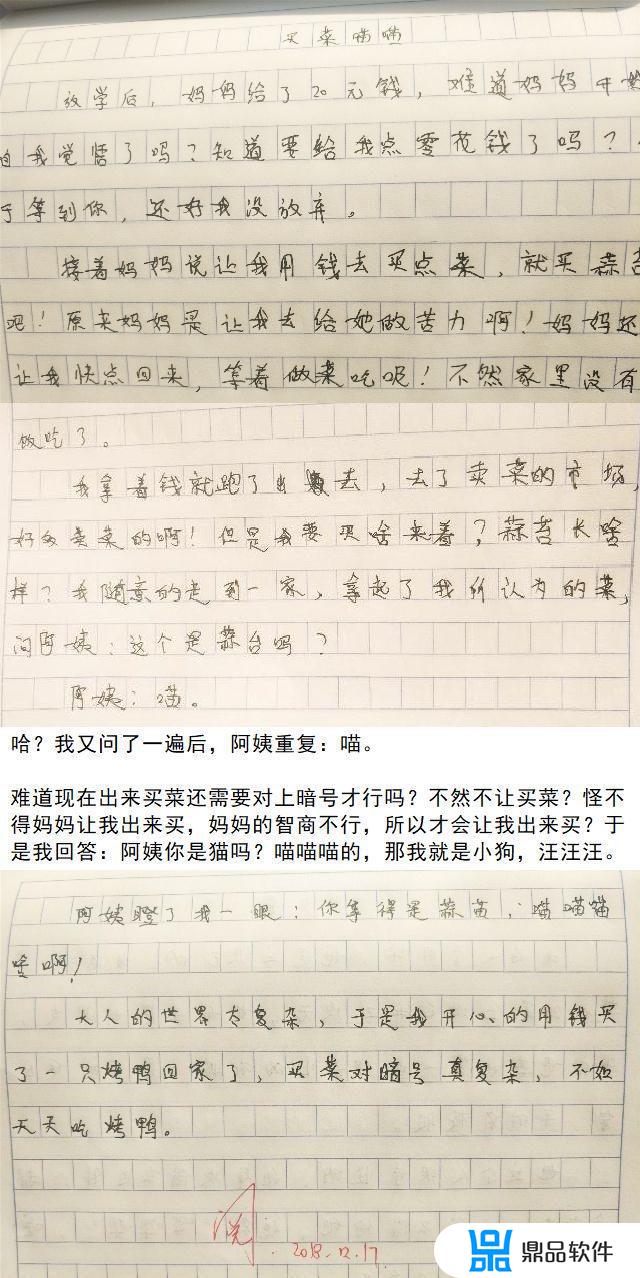 买菜喵喵
放学后，妈妈给了20元钱，难道妈妈开始
自我觉悟了吗？知道要给我点零花钱了吗？
于等到你，还好我没放弃。
接着妈妈说让我用钱去买点菜，就买蒜苔
吧！原来妈妈是让我去给她做苦力啊！妈妈还
让我快点回来，等着做菜吃呢！不然家里没有
做吃了。
我拿着钱就跑了出去，去了卖菜的市场，
好多卖菜的啊！但是我要买啥来着？蒜苔长啥
样？我随意的走到一家，拿起了我所认为的菜，
问阿姨：这个是蒜台吗？
阿姨：喵。
哈？我又问了一遍后，阿姨重复：喵。
难道现在出来买菜还需要对上暗号才行吗？不然不让买菜？怪不
得妈妈让我出来买，妈妈的智商不行，所以才会让我出来买？于
是我回答：阿姨你是猫吗？喵喵喵的，那我就是小狗，汪汪汪。
阿姨瞪了我一眼：你拿得是蒜苗，喵喵喵
啊！
大人的世界太复杂，于是我开心的用钱买
了一只烤鸭回家了，买菜对暗号真复杂，不如
天天吃烤鸭。
阅
2018.12.17
鼎品软件